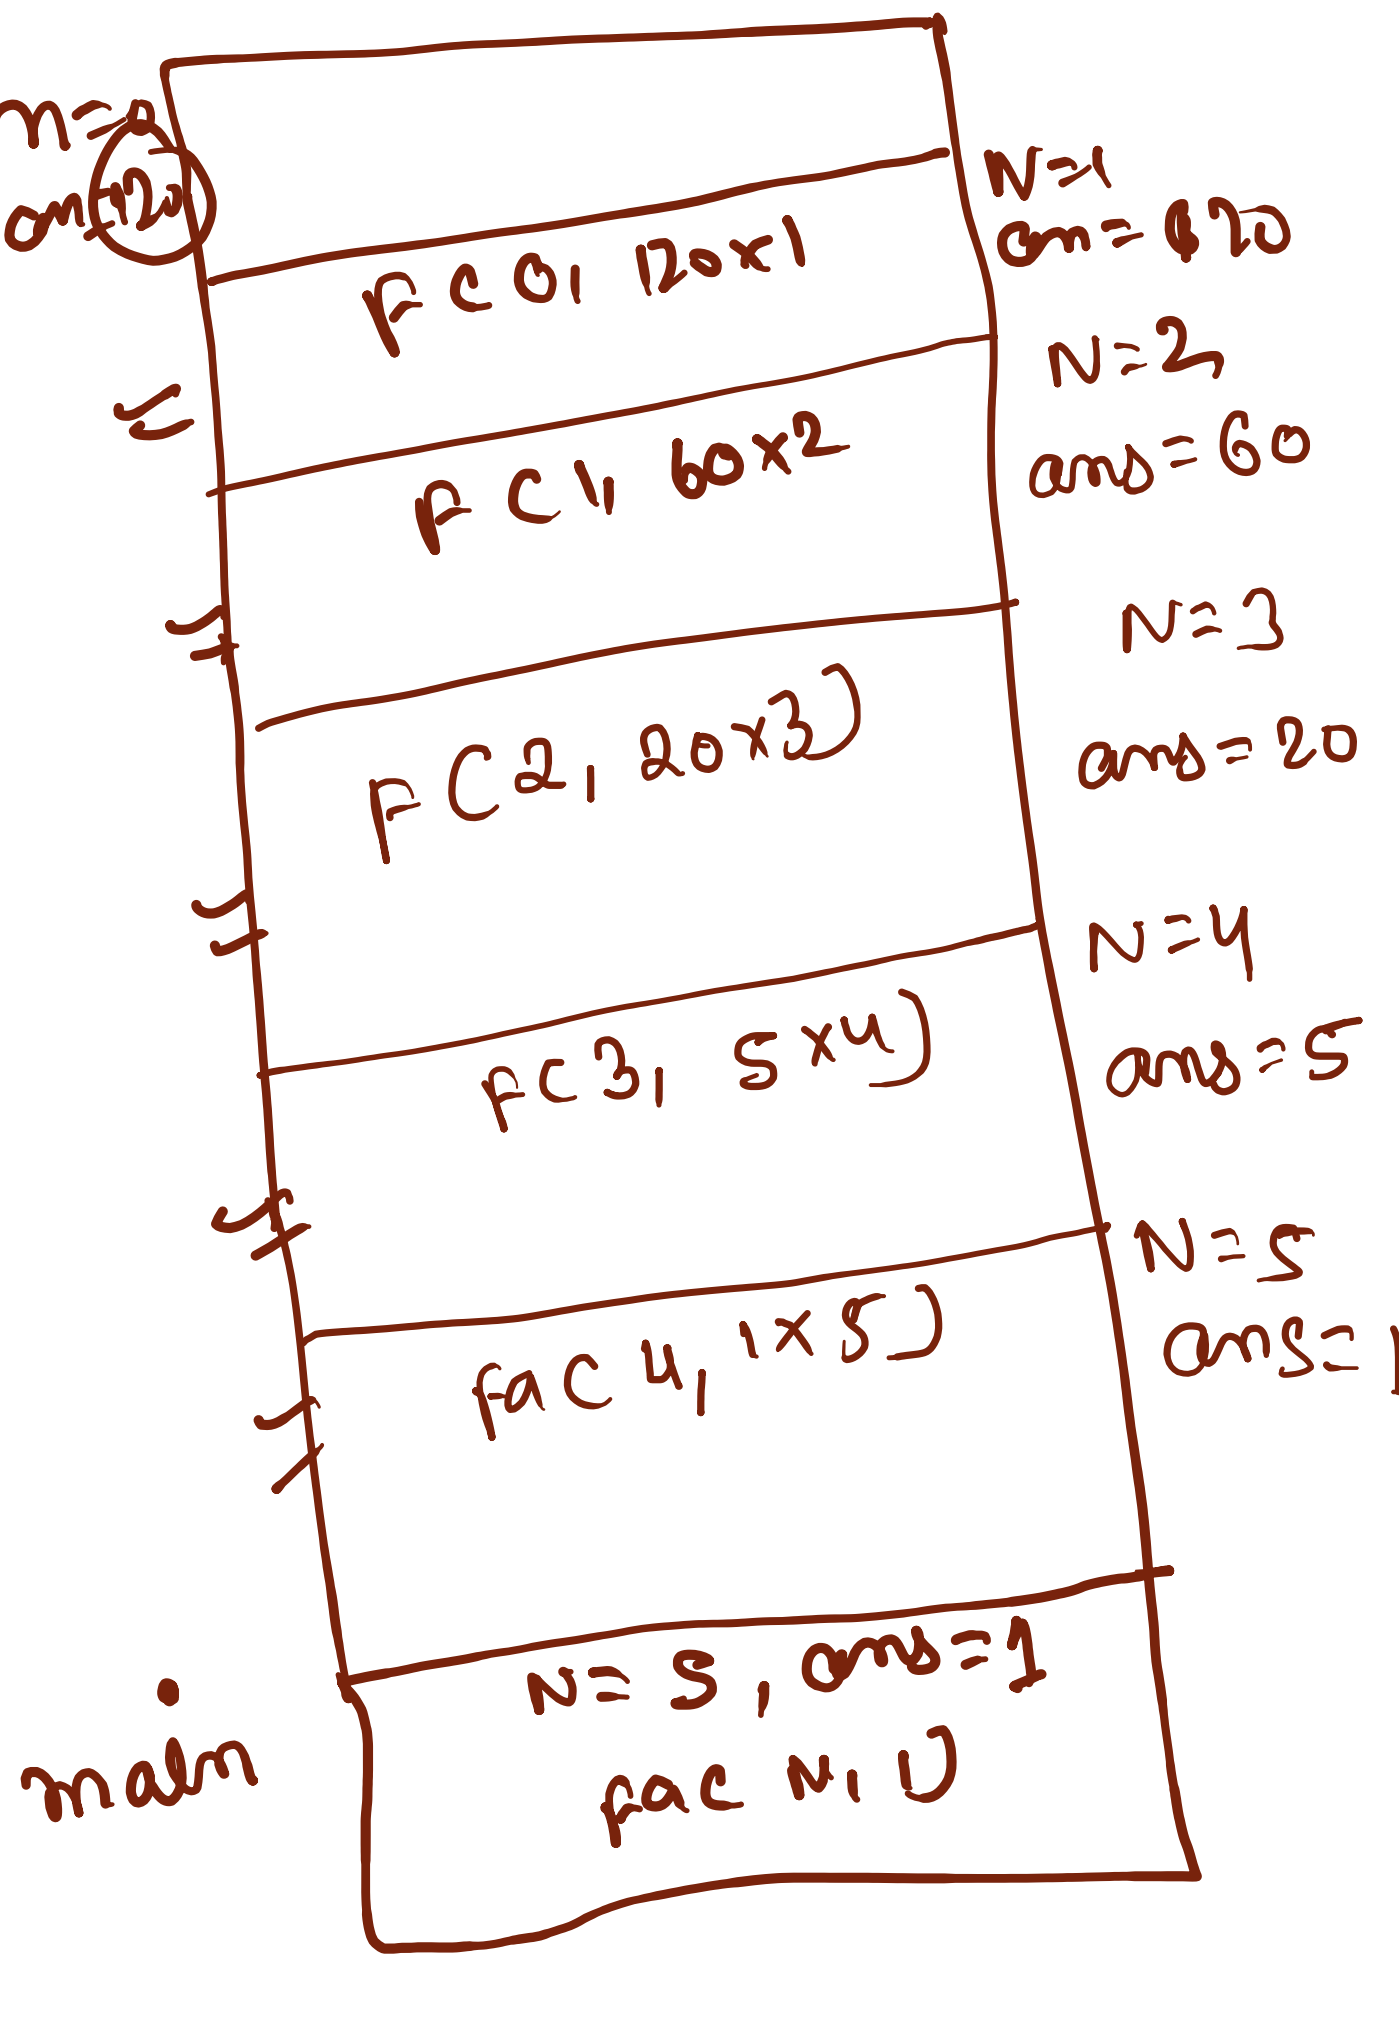 n=0
an=120
N=1
an=120
F(0, 120x1
N=2
ans=60
F(1, 60x2
N=3
ans=20
F(2, 20x3)
N=4
ans=5
F(3, 5x4)
N=5
ans=1
fac4, 1x5)
N=5, ans=1
fac N, 1)
main